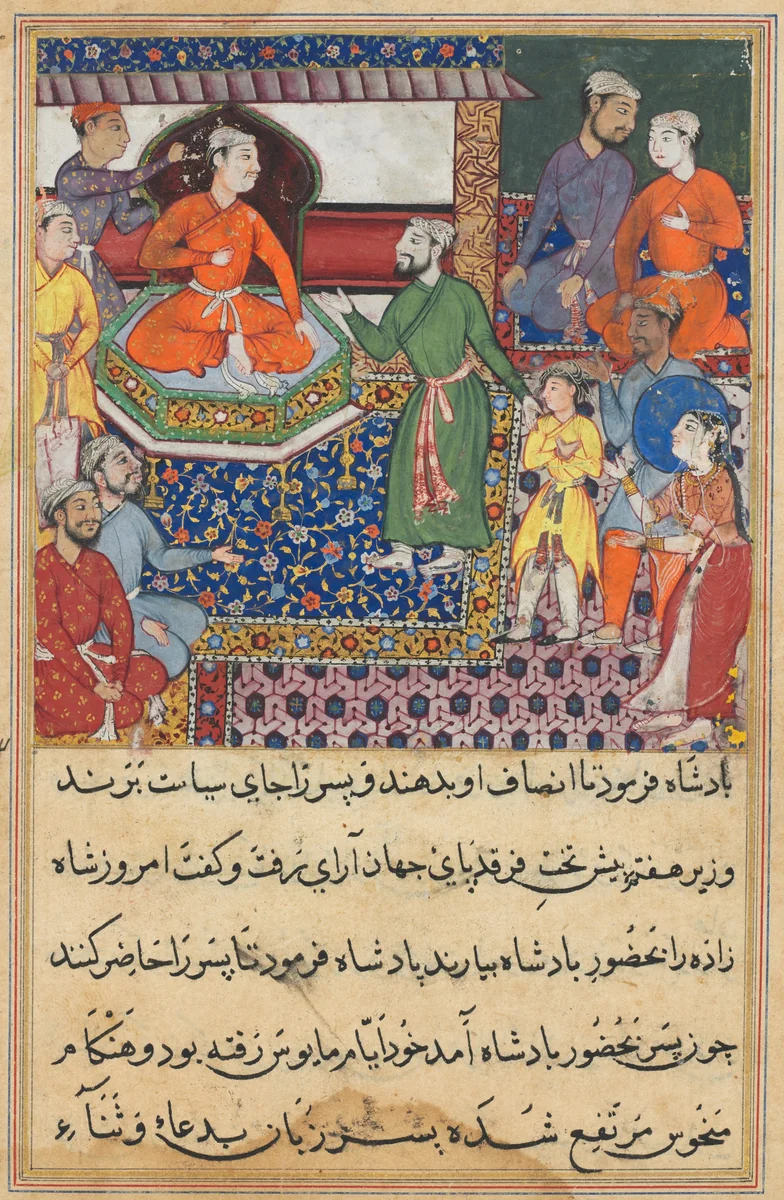 بادشاه فرمود تا انصاف او بدهند و پسر را جاي سياست برند
وزير هفتم پيش تخت فرقد پائ جهان آراي رفت و كفت امروز شاه
زاده را بحضور بادشاه بيارند پادشاه فرمود تا پسر را حاضر كنند
چون پسر بحضور بادشاه آمد خود ايام مايوس رفته بود و هنكام
منحوس مرتفع شده پسر زبان بدعاء و ثناء